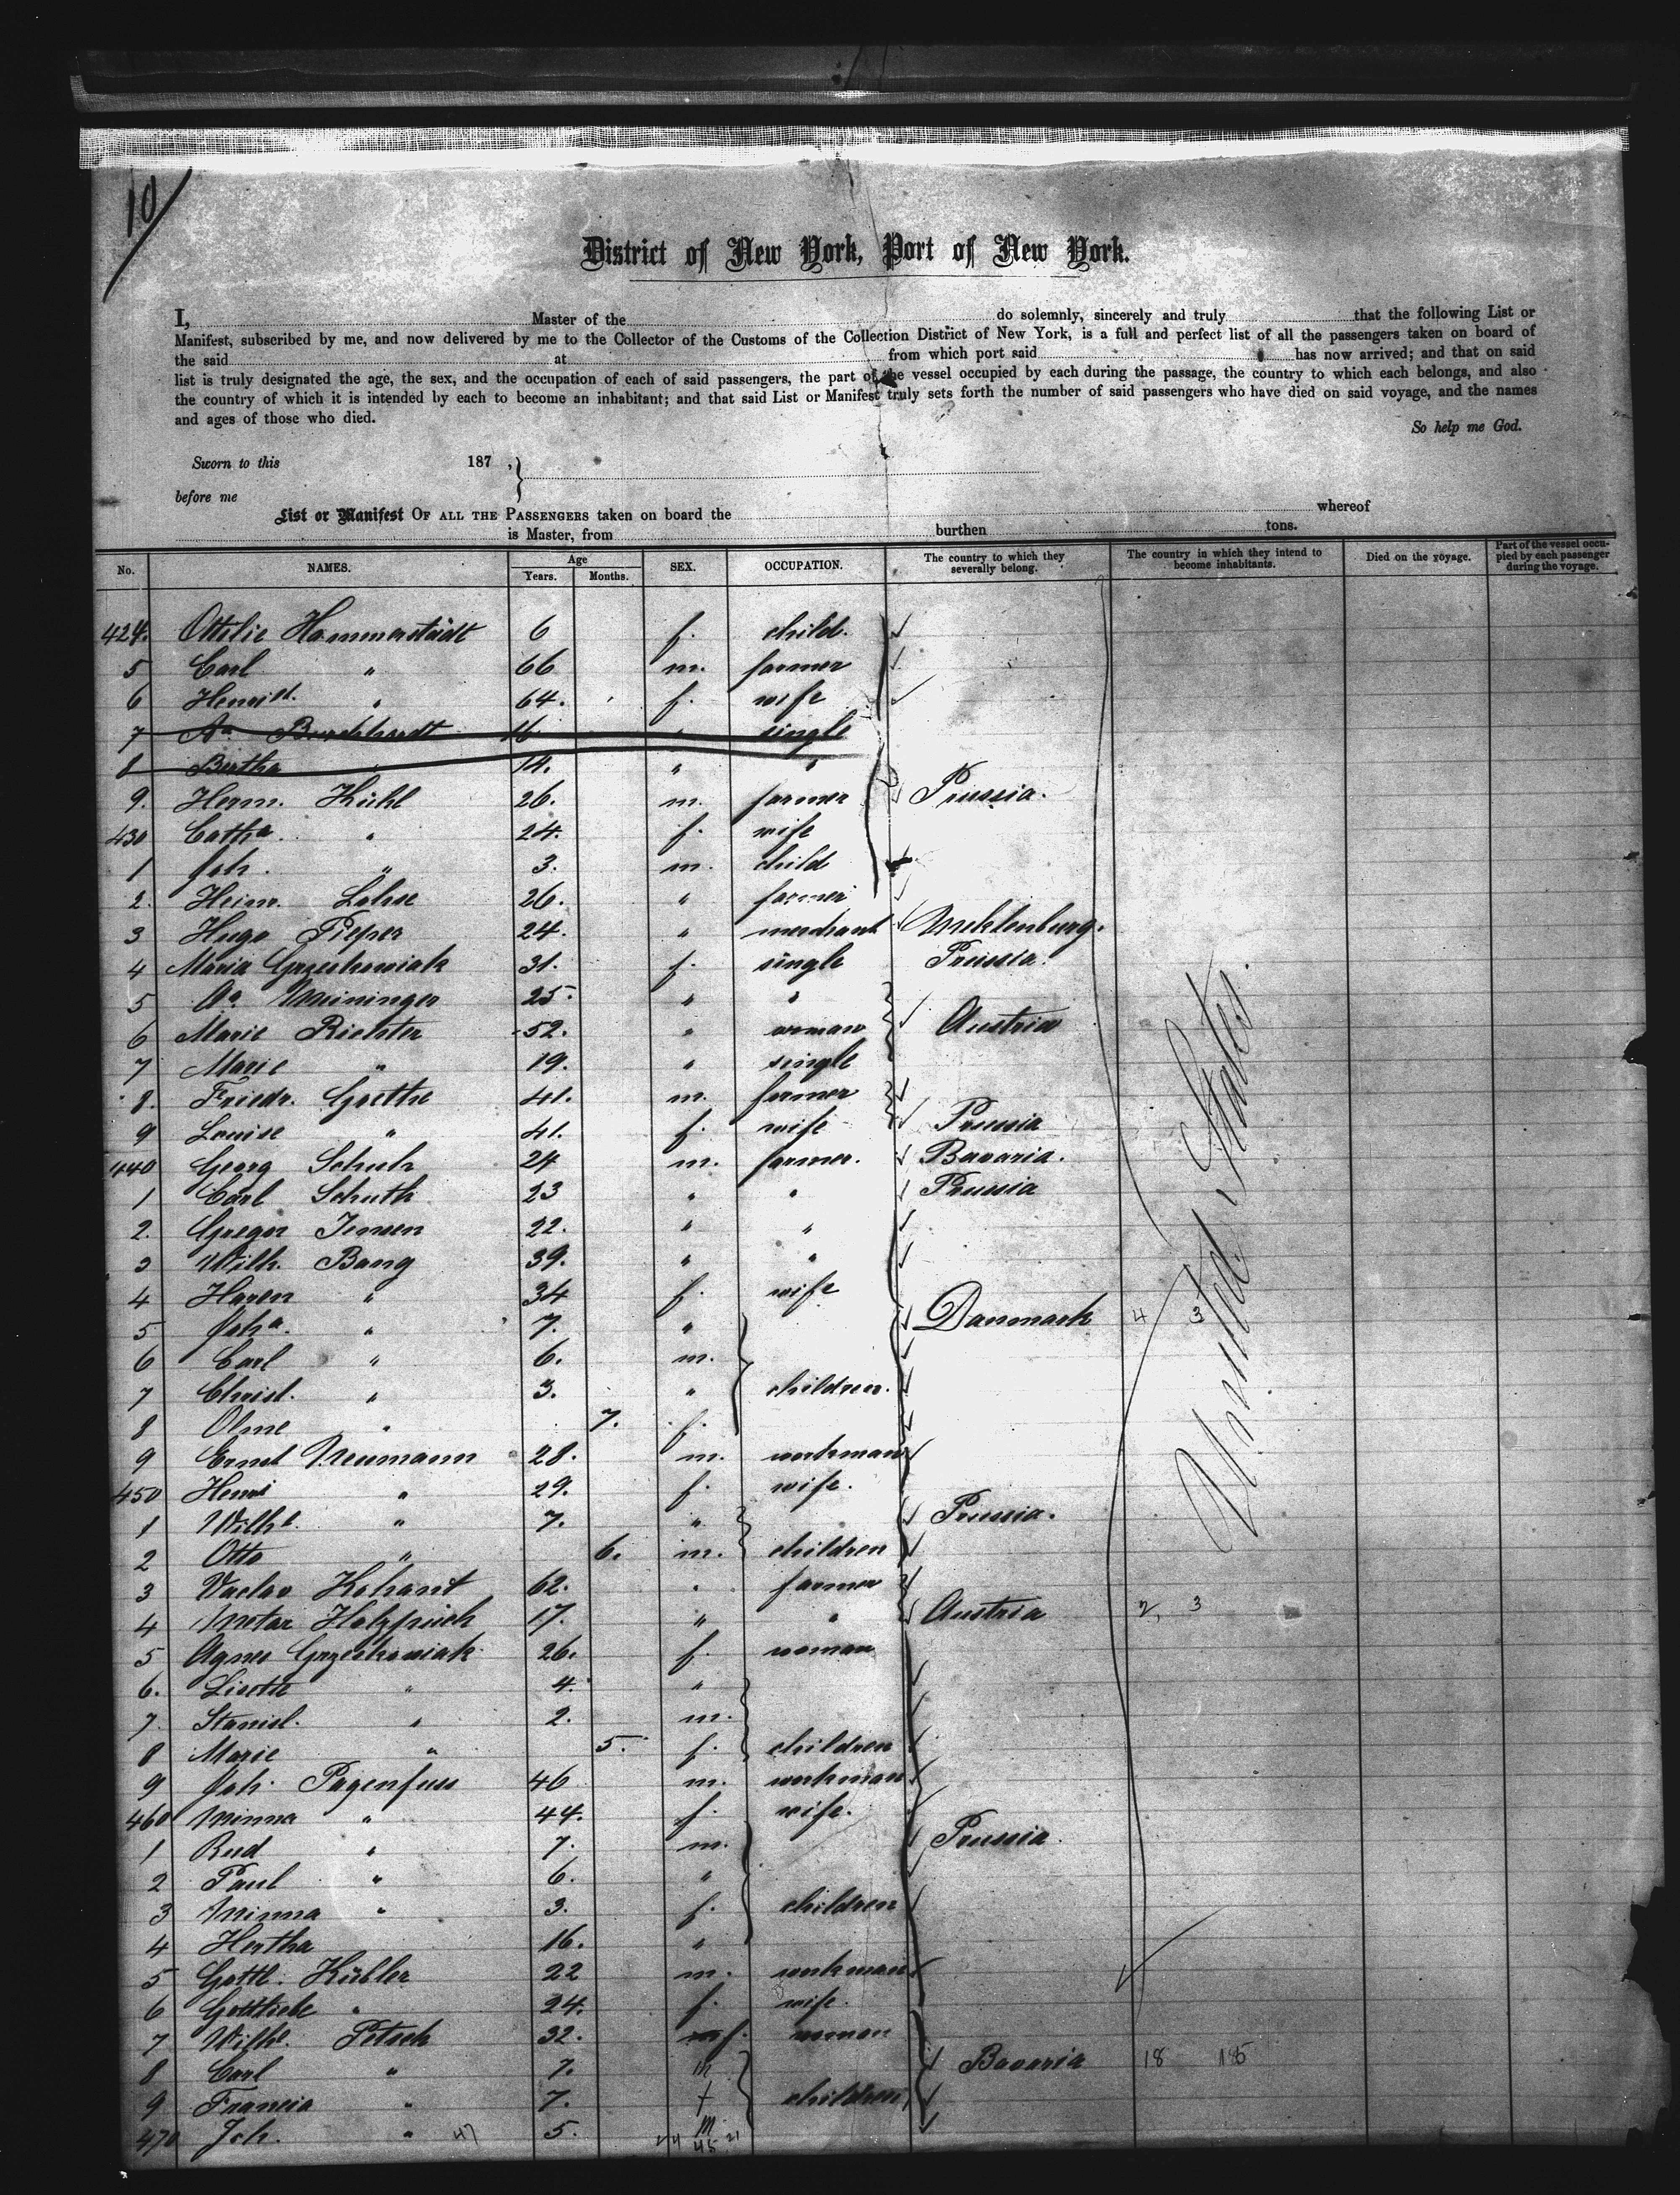 10/
District of New York, Port of New York.
I, Master of the do solemnly, sincerely and truly that the following List or
Manifest, subscribed by me, and now delivered by me to the Collector of the Customs of the Collection District of New York, is a full and perfect list of all the passengers taken on board of
the said at from which port said has now arrived; and that on said
list is truly designated the age, the sex, and the occupation of each of said passengers, the part of the vessel occupied by each during the passage, the country to which each belongs, and also
the country of which it is intended by each to become an inhabitant; and that said List or Manifest truly sets forth the number of said passengers who have died on said voyage, and the names
and ages of those who died.
So help me God.
Sworn to this 187 ,
before me
List or Manifest OF ALL THE PASSENGERS taken on board the whereof
is Master, from burthen tons.
No. NAMES. Age Years. Months. SEX. OCCUPATION. The country to which they severally belong. The country in which they intend to become inhabitants. Died on the voyage. Part of the vessel occupied by each passenger during the voyage.
424. Ottilie Hammerstädt 6 f. child.
5 Carl " 66 m. farmer
6 Henriet. " 64. f. wife
7 Aa Burckhardt 16 " single
8 Bertha " 14. " "
9. Herm. Kühl 26. m. farmer Prussia.
430 Catha " 24. f. wife
1 Joh. " 3. m. child
2. Heinr. Lohse 26. " farmer
3 Hugo Pieper 24. " merchant Mecklenburg.
4 Maria Grzeskowiak 31. f. single Prussia.
5 Aa Meininger 25. " "
6 Marie Richter 52. " woman Austria
7 Marie " 19. " single
8. Friedr. Goethe 41. m. farmer
9 Louise " 41. f. wife Prussia
440 Georg Schulz 24 m. farmer. Bavaria.
1 Carl Schuth 23 " " Prussia
2. Gregor Jensen 22. " "
3 Wilh. Bang 39. " "
4 Haren " 34 f. wife
5 Joha. " 7. " Danmark 4 3
6 Carl " 6. m.
7 Christ. " 3. " children.
8 Olme " 7. f.
9 Ernst Neumann 28. m. workman
450 Henri " 29. f. wife.
1 Wilhe. " 7. " Prussia.
2 Otto " 6. m. children
3 Vaclav 62. " farmer
4 17. " " Austria 2, 3
5 Agnes Grzeskowiak 26. f. woman
6. Lisette " 4. "
7. Stanisl. " 2. m.
8 Marie " 5. f. children
9 Joh. Pagenfuss 46 m. workman
460 Minna " 44. f. wife.
1 Rud " 7. m. Prussia.
2 Paul " 6. "
3 Minna " 3. f. children
4 Hertha 16. "
5 Gottl. Kübler 22 m. workman
6 Gottliebe " 24. f. wife.
7 Wilhe. Petsch 32. f. woman
8 Carl " 7. m Bavaria 18 185
9 Francia " 7. f children
470 Joh. " 47 5. m
24 45 21
United States.